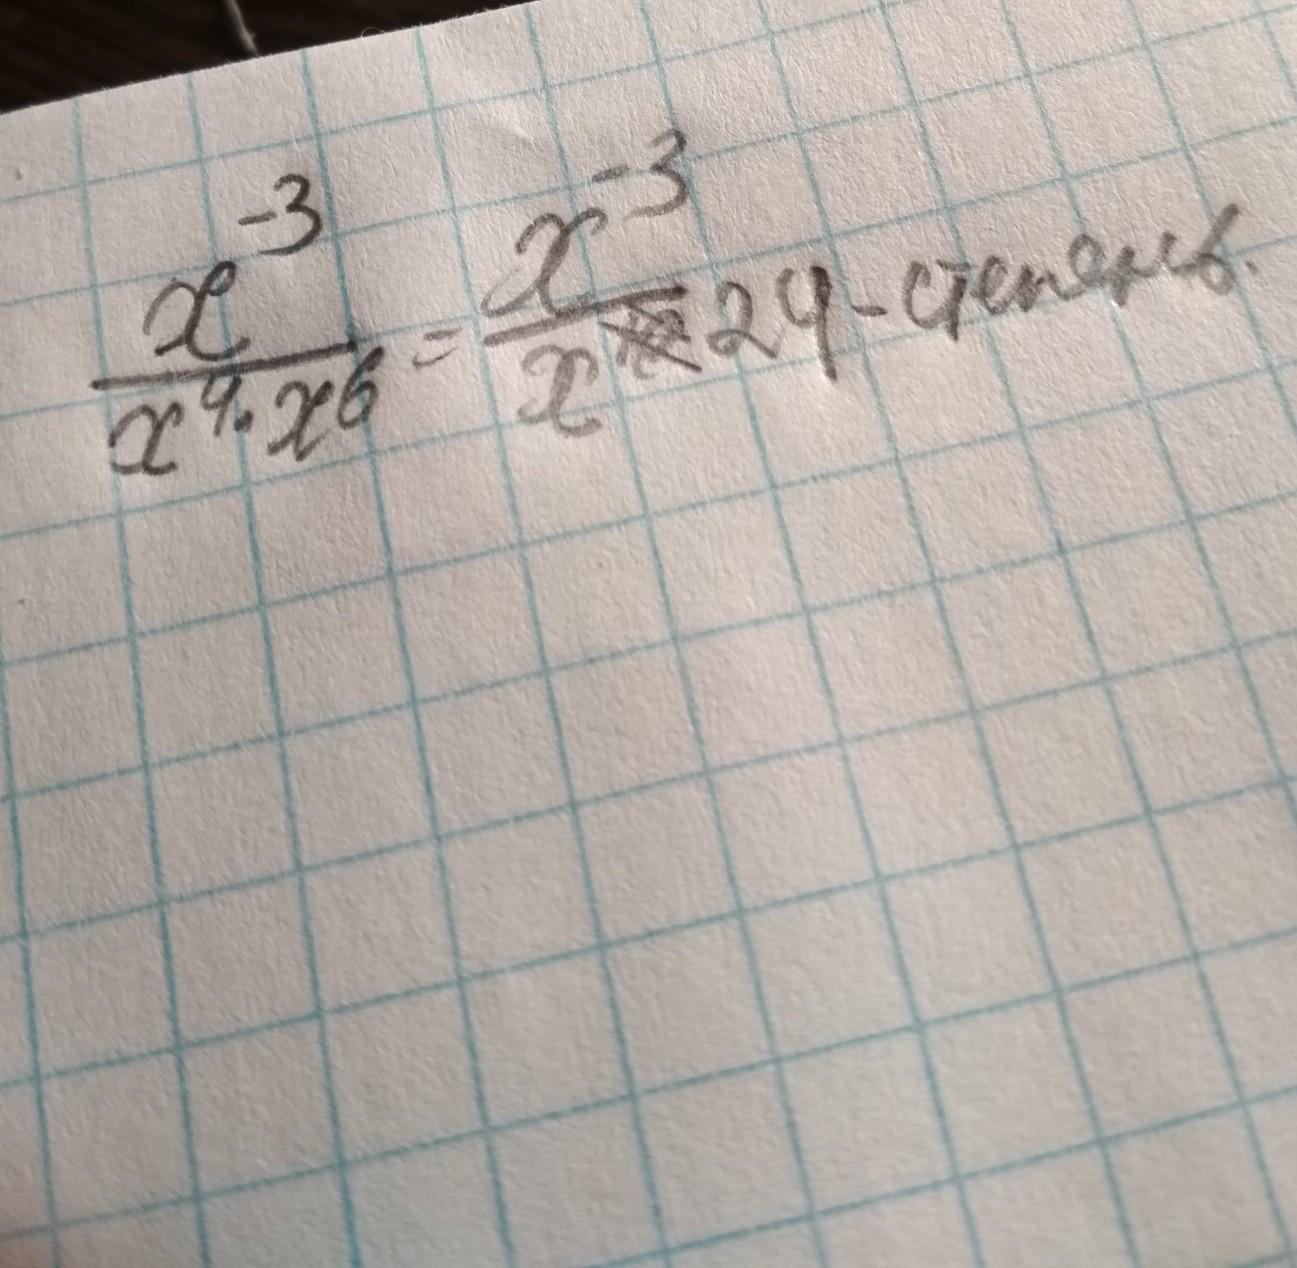 x⁻³ / x⁴·x⁶ = x⁻³ / x 24 - степень.